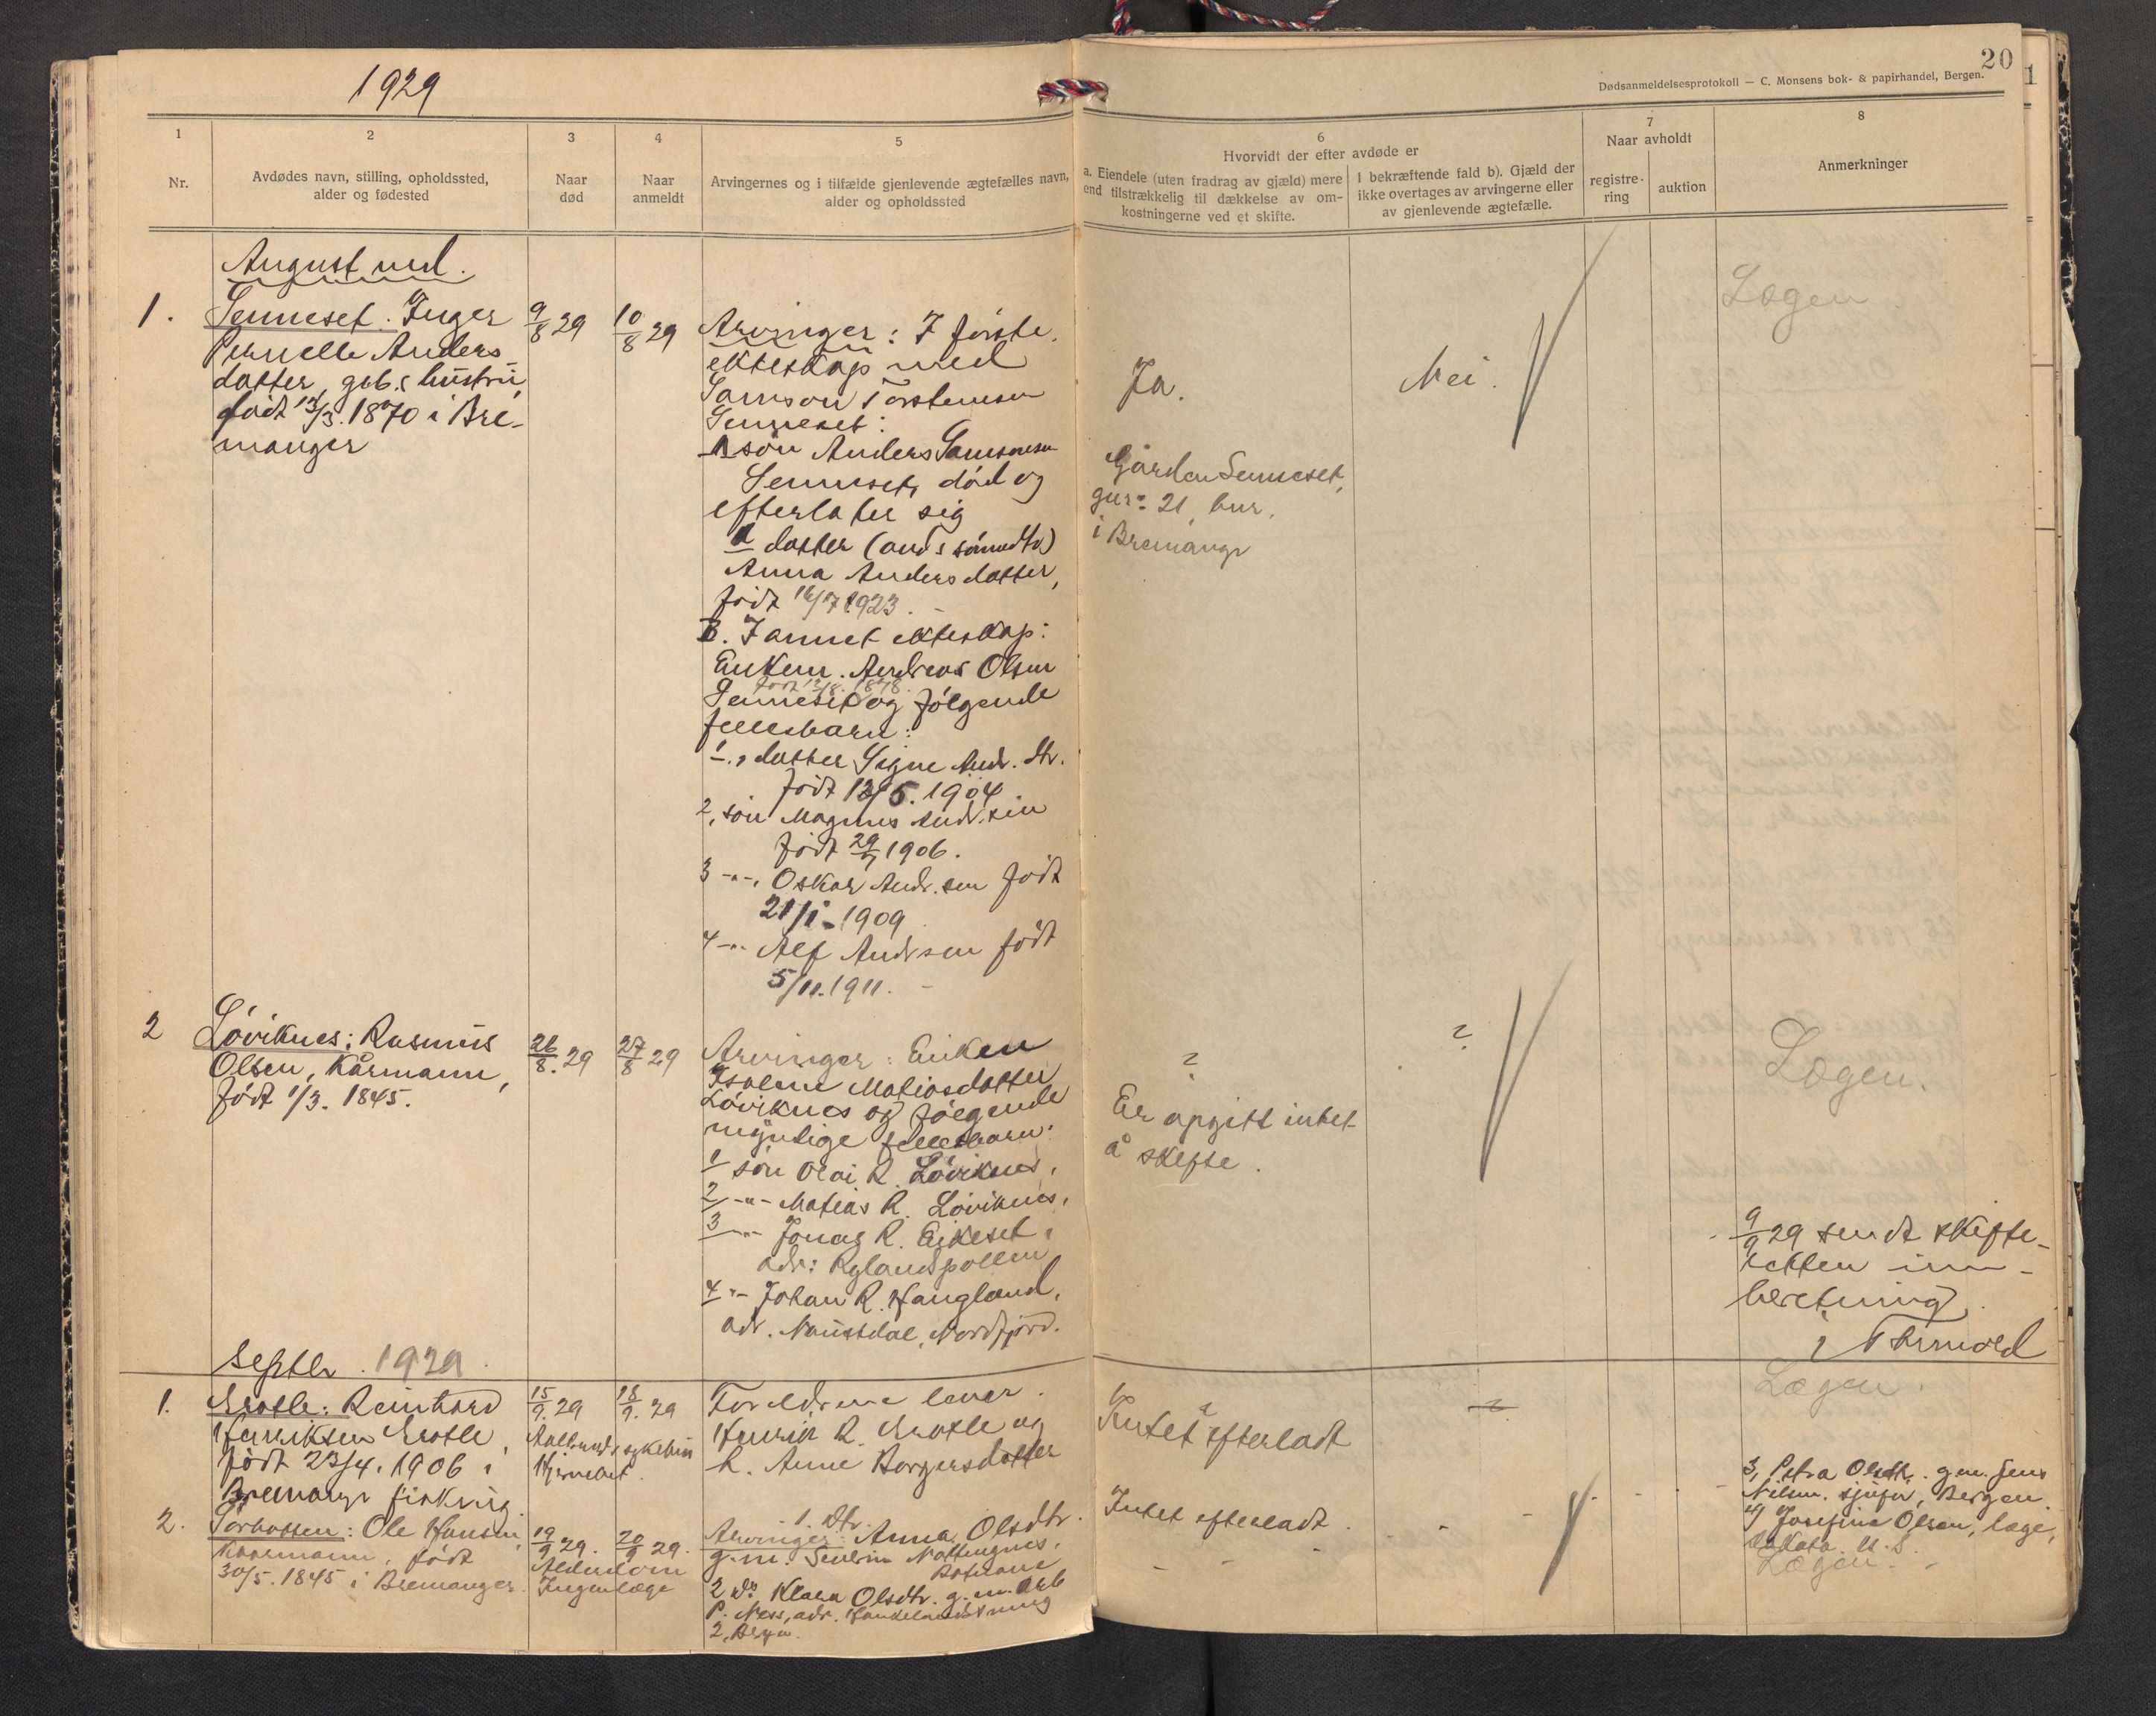 1929
20
Dødsanmeldelsesprotokoll — C. Monsens bok- & papirhandel, Bergen.
1
2
3
4
5
6
7
8
Nr.
Avdødes navn, stilling, opholdssted,
alder og fødested
Naar
død
Naar
anmeldt
Arvingernes og i tilfælde gjenlevende ægtefælles navn,
alder og opholdssted
Hvorvidt der efter avdøde er
a. Eiendele (uten fradrag av gjæld) mere
end tilstrækkelig til dækkelse av om-
kostningerne ved et skifte.
I bekræftende fald b). Gjæld der
ikke overtages av arvingerne eller
av gjenlevende ægtefælle.
Naar avholdt
registre-
ring
auktion
Anmerkninger
August
1. Senneset. Inger
Pernelle Anders
datter, gbs hustru,
født 12/3. 1870 i Bre-
manger
9/8 29
10/8 29
Arvinger: I første
ekteskap med
Samson Torstensen
Senneset:
1 søn Anders Samsonsen
Senneset, død og
efterlater sig
1 datter
Anna Andersdatter,
født 16/7 1923. -
B. I annet ekteskap:
Enkem. Andreas Olsen
født 12/8. 1878.
Senneset og følgende
fellesbarn:
1., datter Signe Andr. dtr.
født 12/5. 1904
2, søn Magnus Andr. sen
født 29/7 1906.
3 -"-, Oskar Andr. sen født
21/1 - 1909
4 -"- Alf Andrsen født
5/11. 1911. -
Ja.
Nei.
Lægen
Gården Senneset,
gnr. 21, bnr.
i Bremanger
2 Løviknes: Rasmus
Olsen, Kårmann,
født 1/3. 1845.
26/8. 29
27/8 29
Arvinger: Enken
Isalene Matiasdatter
Løviknes og følgende
myndige fellesbarn:
1 søn Olai R. Løviknes,
2 -"- Matias R. Løviknes,
3 -"- Jonas R. Eikeset,
adr: Rylandspollen
4 -"- Johan R. Haugland,
adr. Naustdal, Nordfjord.
?
?
Er opgitt intet
å skifte.
Lægen.
9/9 29 sendt skifte-
retten inn-
beretning.
Septbr. 1929
1. Grotle: Reinhard
Henriksen Grotle,
født 23/4. 1906 i
Bremanger
15/9. 29
18/9. 29
sykehus
Foreldrene lever.
Henrik R. Grotle og
h. Anne Borgersdotter
Intet efterladt
Lægen.
2. Sørbotten: Ole Hansen,
Kaarmann, født
30/5. 1845 i Bremanger.
19/9 29.
20/9 29.
Alderdom
Ingen læge
1. Dtr.
Arvinger: Anna Olsdtr.
g. m. Severin
2 do Klara Olsdtr. g. m.
P. Ness, adr.
2, Bergen.
Intet efterladt.
3, Petra Olsdtr. g. m. Jens
Nilsen, sjåfør, Bergen.
4) Josefine Olsen, læge,
U. S.
Lægen.